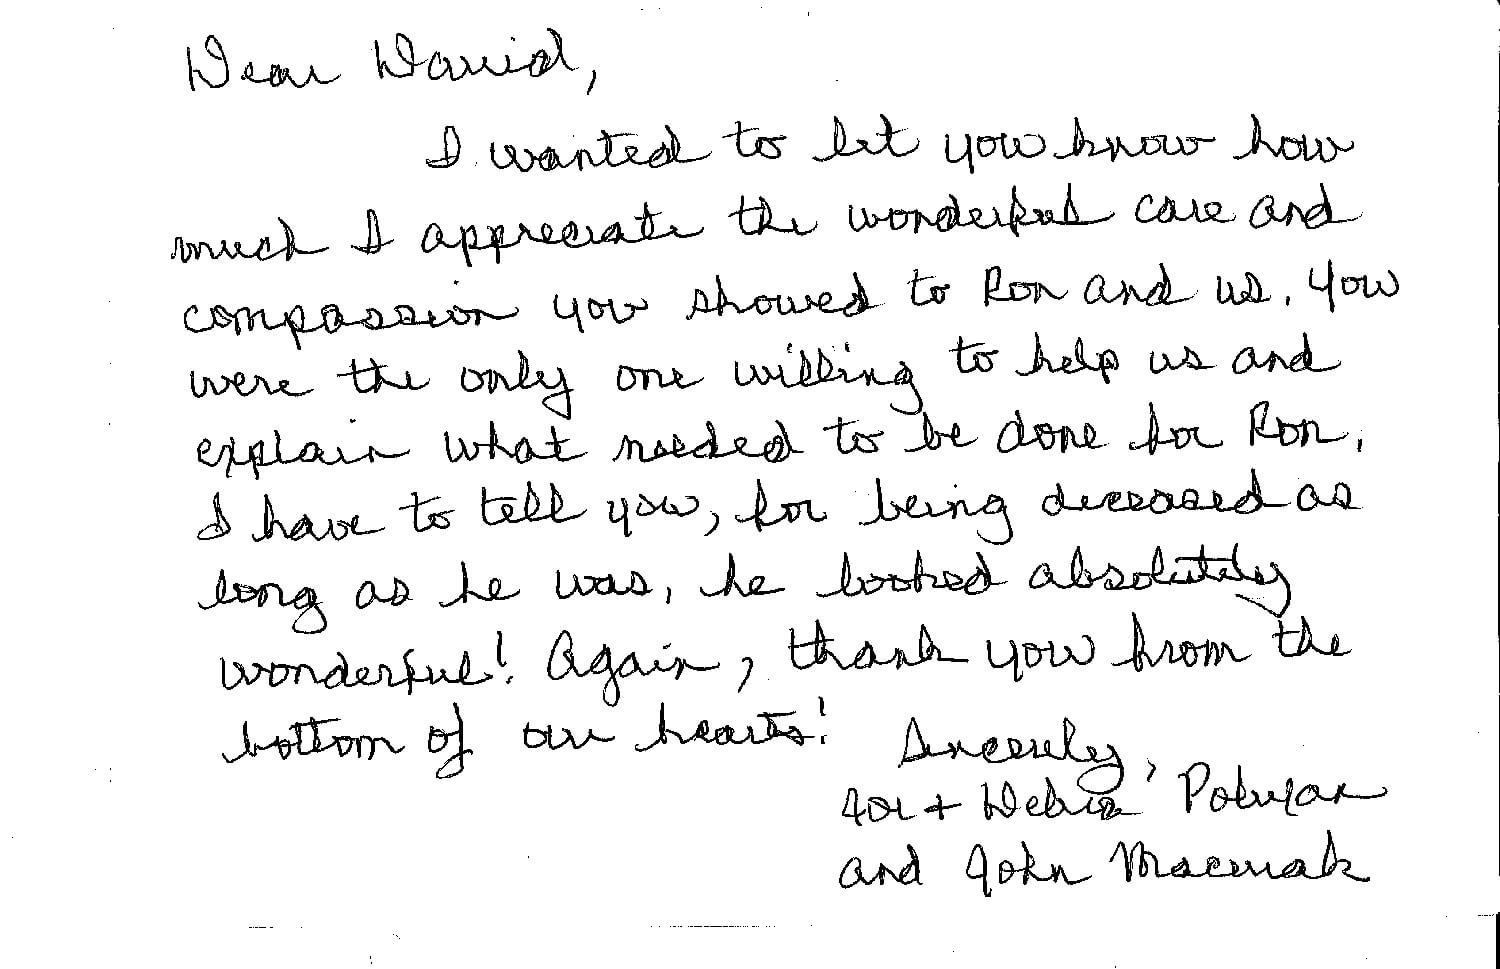 Dear David,
I wanted to let you know how
much I appreciate the wonderful care and
compassion you showed to Ron and us. You
were the only one willing to help us and
explain what needed to be done for Ron.
I have to tell you, for being deceased as
long as he was, he looked absolutely
wonderful! Again, thank you from the
bottom of our hearts!
Sincerely,
+ Debia
and John